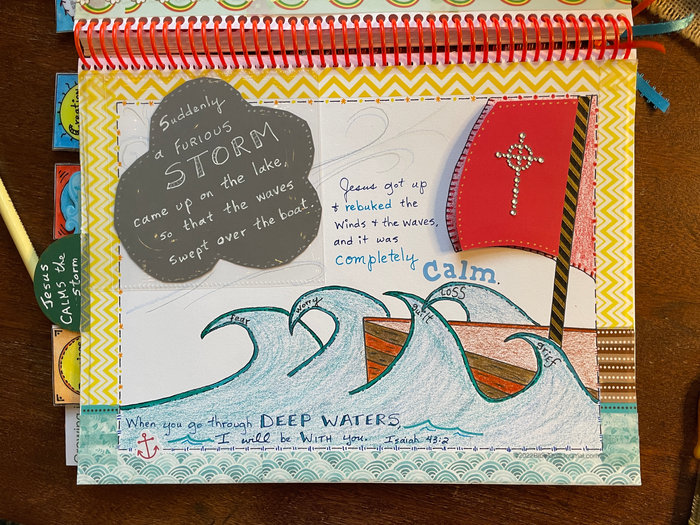 Suddenly
a FURIOUS
STORM
came up on the lake,
so that the waves
swept over the boat.
Jesus got up
& rebuked the
winds & the waves,
and it was
completely
Calm.
fear
worry
guilt
LOSS
grief
When you go through DEEP WATERS,
I will be WITH you. Isaiah 43:2
Creation
Jesus
CALMS the
Storm